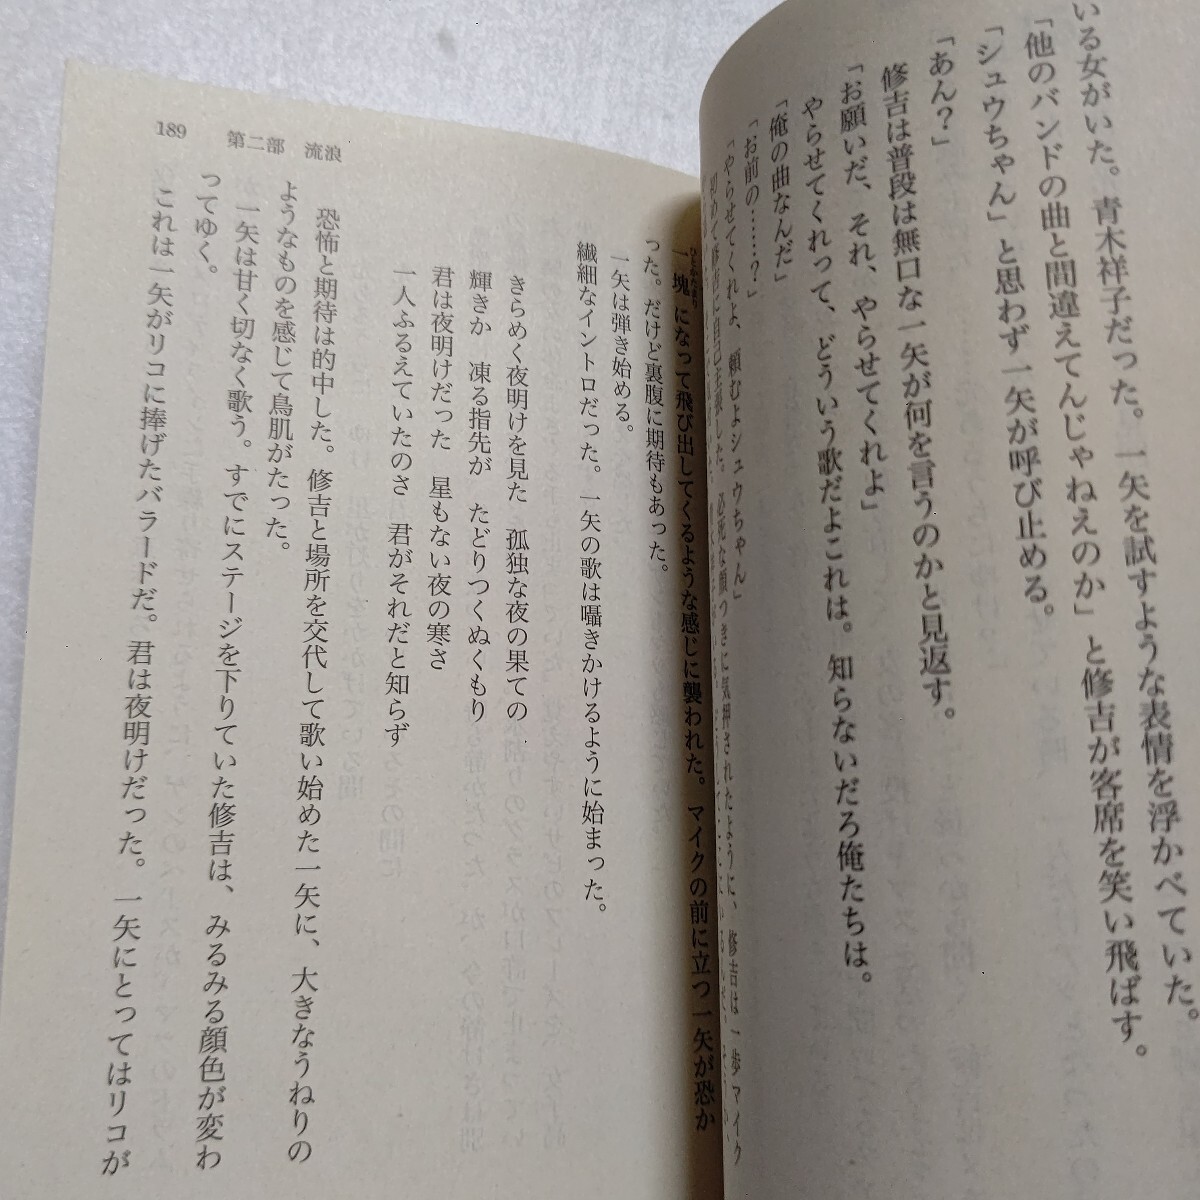 いる女がいた。青木祥子だった。一矢を試すような表情を浮かべていた。
「他のバンドの曲と間違えてんじゃねえのか」と修吉が客席を笑い飛ばす。
「シュウちゃん」と思わず一矢が呼び止める。
「あん？」
修吉は普段は無口な一矢が何を言うのかと見返す。
「お願いだ、それ、やらせてくれよ」
やらせてくれって、どういう歌だよこれは。知らないだろ俺たちは。
「俺の曲なんだ」
「お前の……？」
「やらせてくれよ、頼むよシュウちゃん」
初めて修吉に自己主張した。必死な顔つきに気押されたように、修吉は一歩マイク
189　第二部　流浪
一塊になって飛び出してくるような感じに襲われた。マイクの前に立つ一矢が恐か
った。だけど裏腹に期待もあった。
一矢は弾き始める。
繊細なイントロだった。一矢の歌は囁きかけるように始まった。
きらめく夜明けを見た　孤独な夜の果ての
輝きか　凍る指先が　たどりつくぬくもり
君は夜明けだった　星もない夜の寒さ
一人ふるえていたのさ　君がそれだと知らず
恐怖と期待は的中した。修吉と場所を交代して歌い始めた一矢に、大きなうねりの
ようなものを感じて鳥肌がたった。
一矢は甘く切なく歌う。すでにステージを下りていた修吉は、みるみる顔色が変わ
ってゆく。
これは一矢がリコに捧げたバラードだ。君は夜明けだった。一矢にとってはリコが